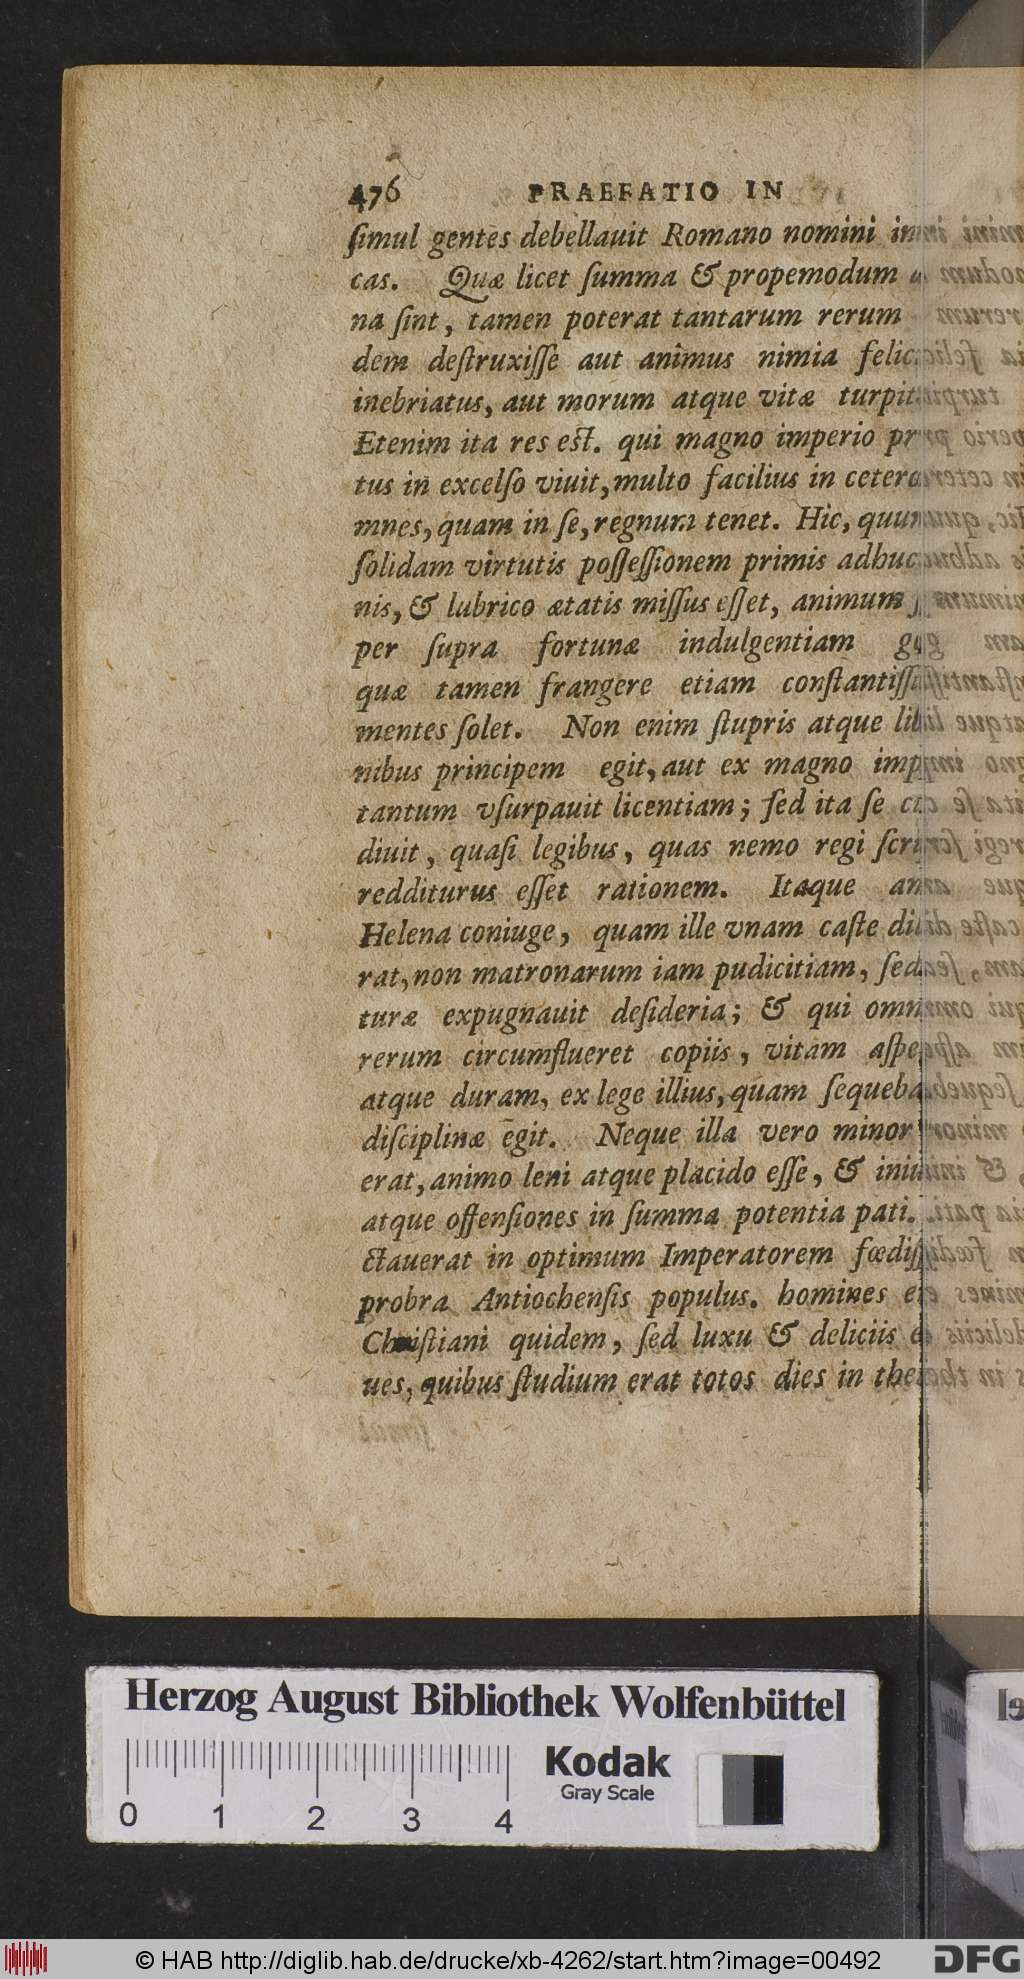 476 PRAEFATIO IN
ſimul gentes debellauit Romano nomini
cas. Quæ licet ſumma & propemodum
na ſint, tamen poterat tantarum rerum
dem deſtruxiſſe aut animus nimia
inebriatus, aut morum atque vitæ
Etenim ita res eſt. qui magno imperio
tus in excelſo viuit, multo facilius in
mnes, quam in ſe, regnum tenet. Hic,
ſolidam virtutis poſſeſſionem primis
nis, & lubrico ætatis miſſus eſſet, animum
per ſupra fortunæ indulgentiam
quæ tamen frangere etiam
mentes ſolet. Non enim ſtupris atque
nibus principem egit, aut ex magno
tantum vſurpauit licentiam; ſed ita ſe
diuit, quaſi legibus, quas nemo regi
redditurus eſſet rationem. Itaque
Helena coniuge, quam ille vnam caſte
rat, non matronarum iam pudicitiam,
turæ expugnauit deſideria; & qui
rerum circumflueret copiis, vitam
atque duram, ex lege illius, quam
diſciplinæ egit. Neque illa vero
erat, animo leni atque placido eſſe, &
atque offenſiones in ſumma potentia pati.
ctauerat in optimum Imperatorem
probra Antiochenſis populus. homines
Chriſtiani quidem, ſed luxu & deliciis
ues, quibus ſtudium erat totos dies in
Herzog August Bibliothek Wolfenbüttel
Kodak
Gray Scale
0 1 2 3 4
© HAB http://diglib.hab.de/drucke/xb-4262/start.htm?image=00492
DFG